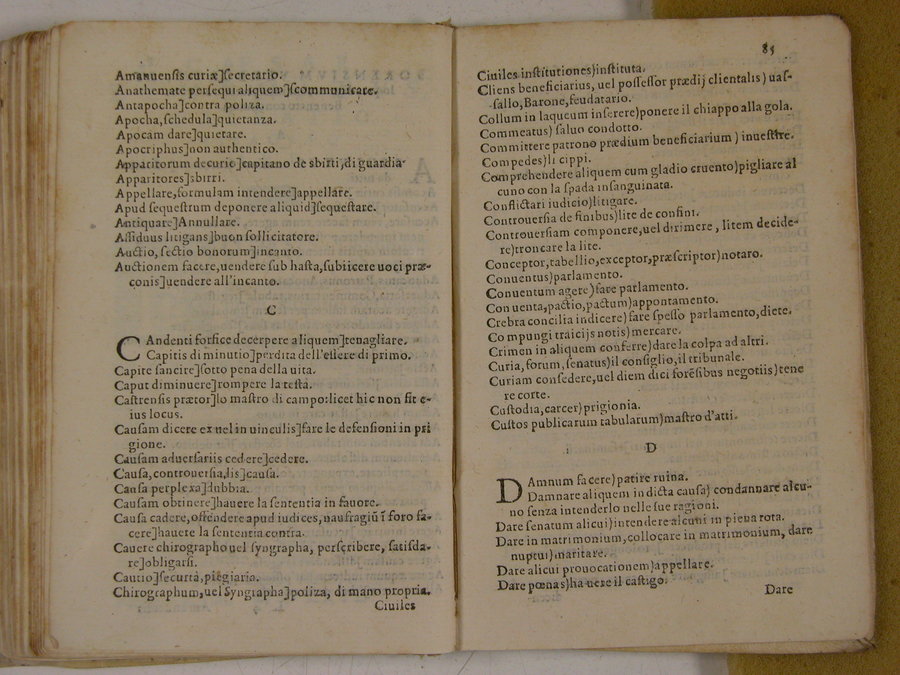 Amanuensis curiæ]secretario.
Anathemate persequi aliquem]scommunicare.
Antapocha]contra poliza.
Apocha,schedula]quietanza.
Apocam dare]quietare.
Apocriphus]non authentico.
Apparitorum decurio]capitano de sbirri,di guardia
Apparitores]sbirri.
Appellare,formulam intendere]appellare.
Apud sequestrum deponere aliquid]sequestare.
Antiquare]Annullare.
Assiduus litigans]buon sollicitatore.
Auctio,sectio bonorum]incanto.
Auctionem facere,uendere sub hasta,subiicere uoci præ-
conis]uendere all'incanto.
C
CAndenti forfice decerpere aliquem]tenagliare.
Capitis diminutio]perdita dell'essere di primo.
Capite sancire]sotto pena della uita.
Caput diminuere]rompere la testa.
Castrensis prætor]lo mastro di campo:licet hic non sit e-
ius locus.
Causam dicere ex uel in uinculis]fare le defensioni in pri
gione.
Causam aduersariis cedere]cedere.
Causa,controuersia,lis]causa.
Causa perplexa]dubbia.
Causam obtinere]hauere la sententia in fauore.
Causa cadere,offendere apud iudices,naufragiū ī foro fa-
cere]hauere la sententia contra.
Cauere chirographo uel syngrapha, perscribere, satisda-
re]obligarsi.
Cautio]securtà,piegiaria.
Chirographum,uel Syngrapha]poliza, di mano propria.
Ciuiles
85
Ciuiles institutiones)instituta.
Cliens beneficiarius, uel possessor prædij clientalis) uas-
sallo,Barone,feudatario.
Collum in laqueum inserere)ponere il chiappo alla gola.
Commeatus) saluo condotto.
Committere patrono prædium beneficiarium ) inuestire.
Compedes)li cippi.
Comprehendere aliquem cum gladio cruento)pigliare al
cuno con la spada insanguinata.
Conflictari iudicio)litigare.
Controuersia de finibus)lite de confini.
Controuersiam componere,uel dirimere , litem decide-
re)troncare la lite.
Conceptor,tabellio,exceptor,præscriptor)notaro.
Conuentus)parlamento.
Conuentum agere) fare parlamento.
Conuenta,pactio,pactum)appontamento.
Crebra concilia indicere) fare spesso parlamento,diete.
Compungi traicijs notis) mercare.
Crimen in aliquem conferre)dare la colpa ad altri.
Curia,forum,senatus)il consiglio,il tribunale.
Curiam consedere,uel diem dici forēsibus negotiis)tene
re corte.
Custodia,carcer)prigionia.
Custos publicarum tabularum)mastro d'atti.
D
DAmnum facere)patire ruina.
Damnare aliquem indicta causa) condannare alcu-
no senza intenderlo nelle sue ragioni.
Dare senatum alicui)intendere alcuni in piena rota.
Dare in matrimonium,collocare in matrimonium, dare
nuptui)maritare.
Dare alicui prouocationem)appellare.
Dare pœnas)hauere il castigo.
Dare